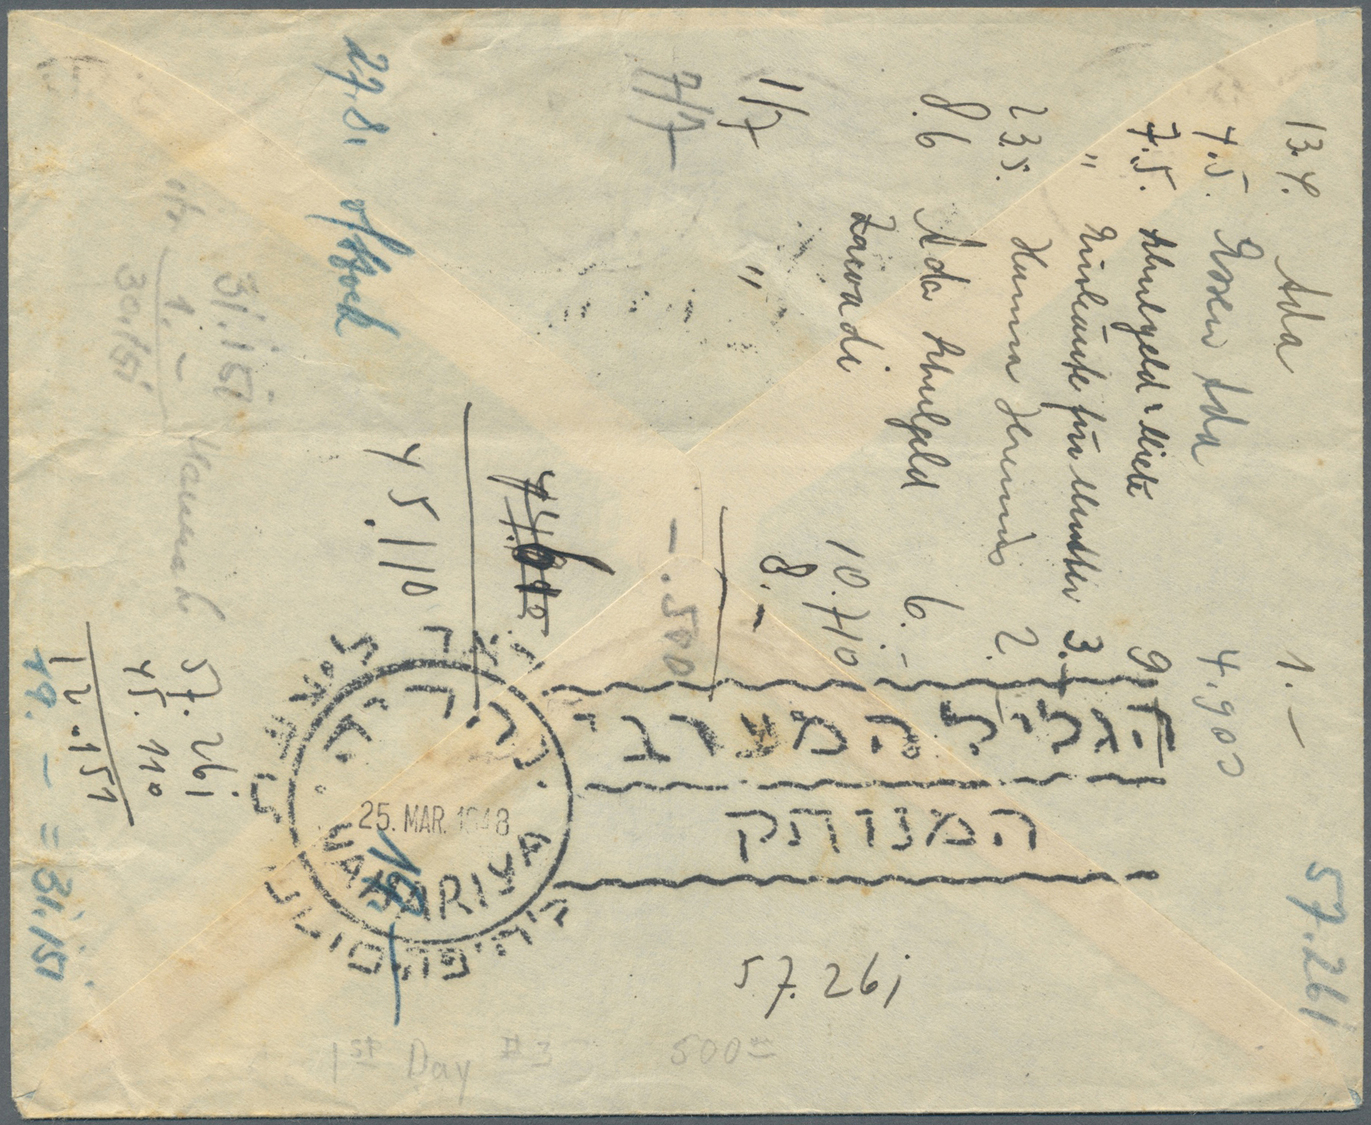 13.4. Ada 1.–
4.5. Essen Ada 4.900
7.5. Schulgeld & Miete 9.
" Einkäufe für Mutter 3.–
23.5. Hanna 2.
8.6 Ada Schulgeld 6.–
Zawadi 10.710
1/7 " 8.–
7/7 –.500
45.110
27.8.
31.151
1.–
30.151
57.261
45.110
12.151
19.– = 31.151
57.261
57.261
הגליל המערבי
המנותק
נהריה
25. MAR. 1948
NAHARIYA
1st Day #3
500